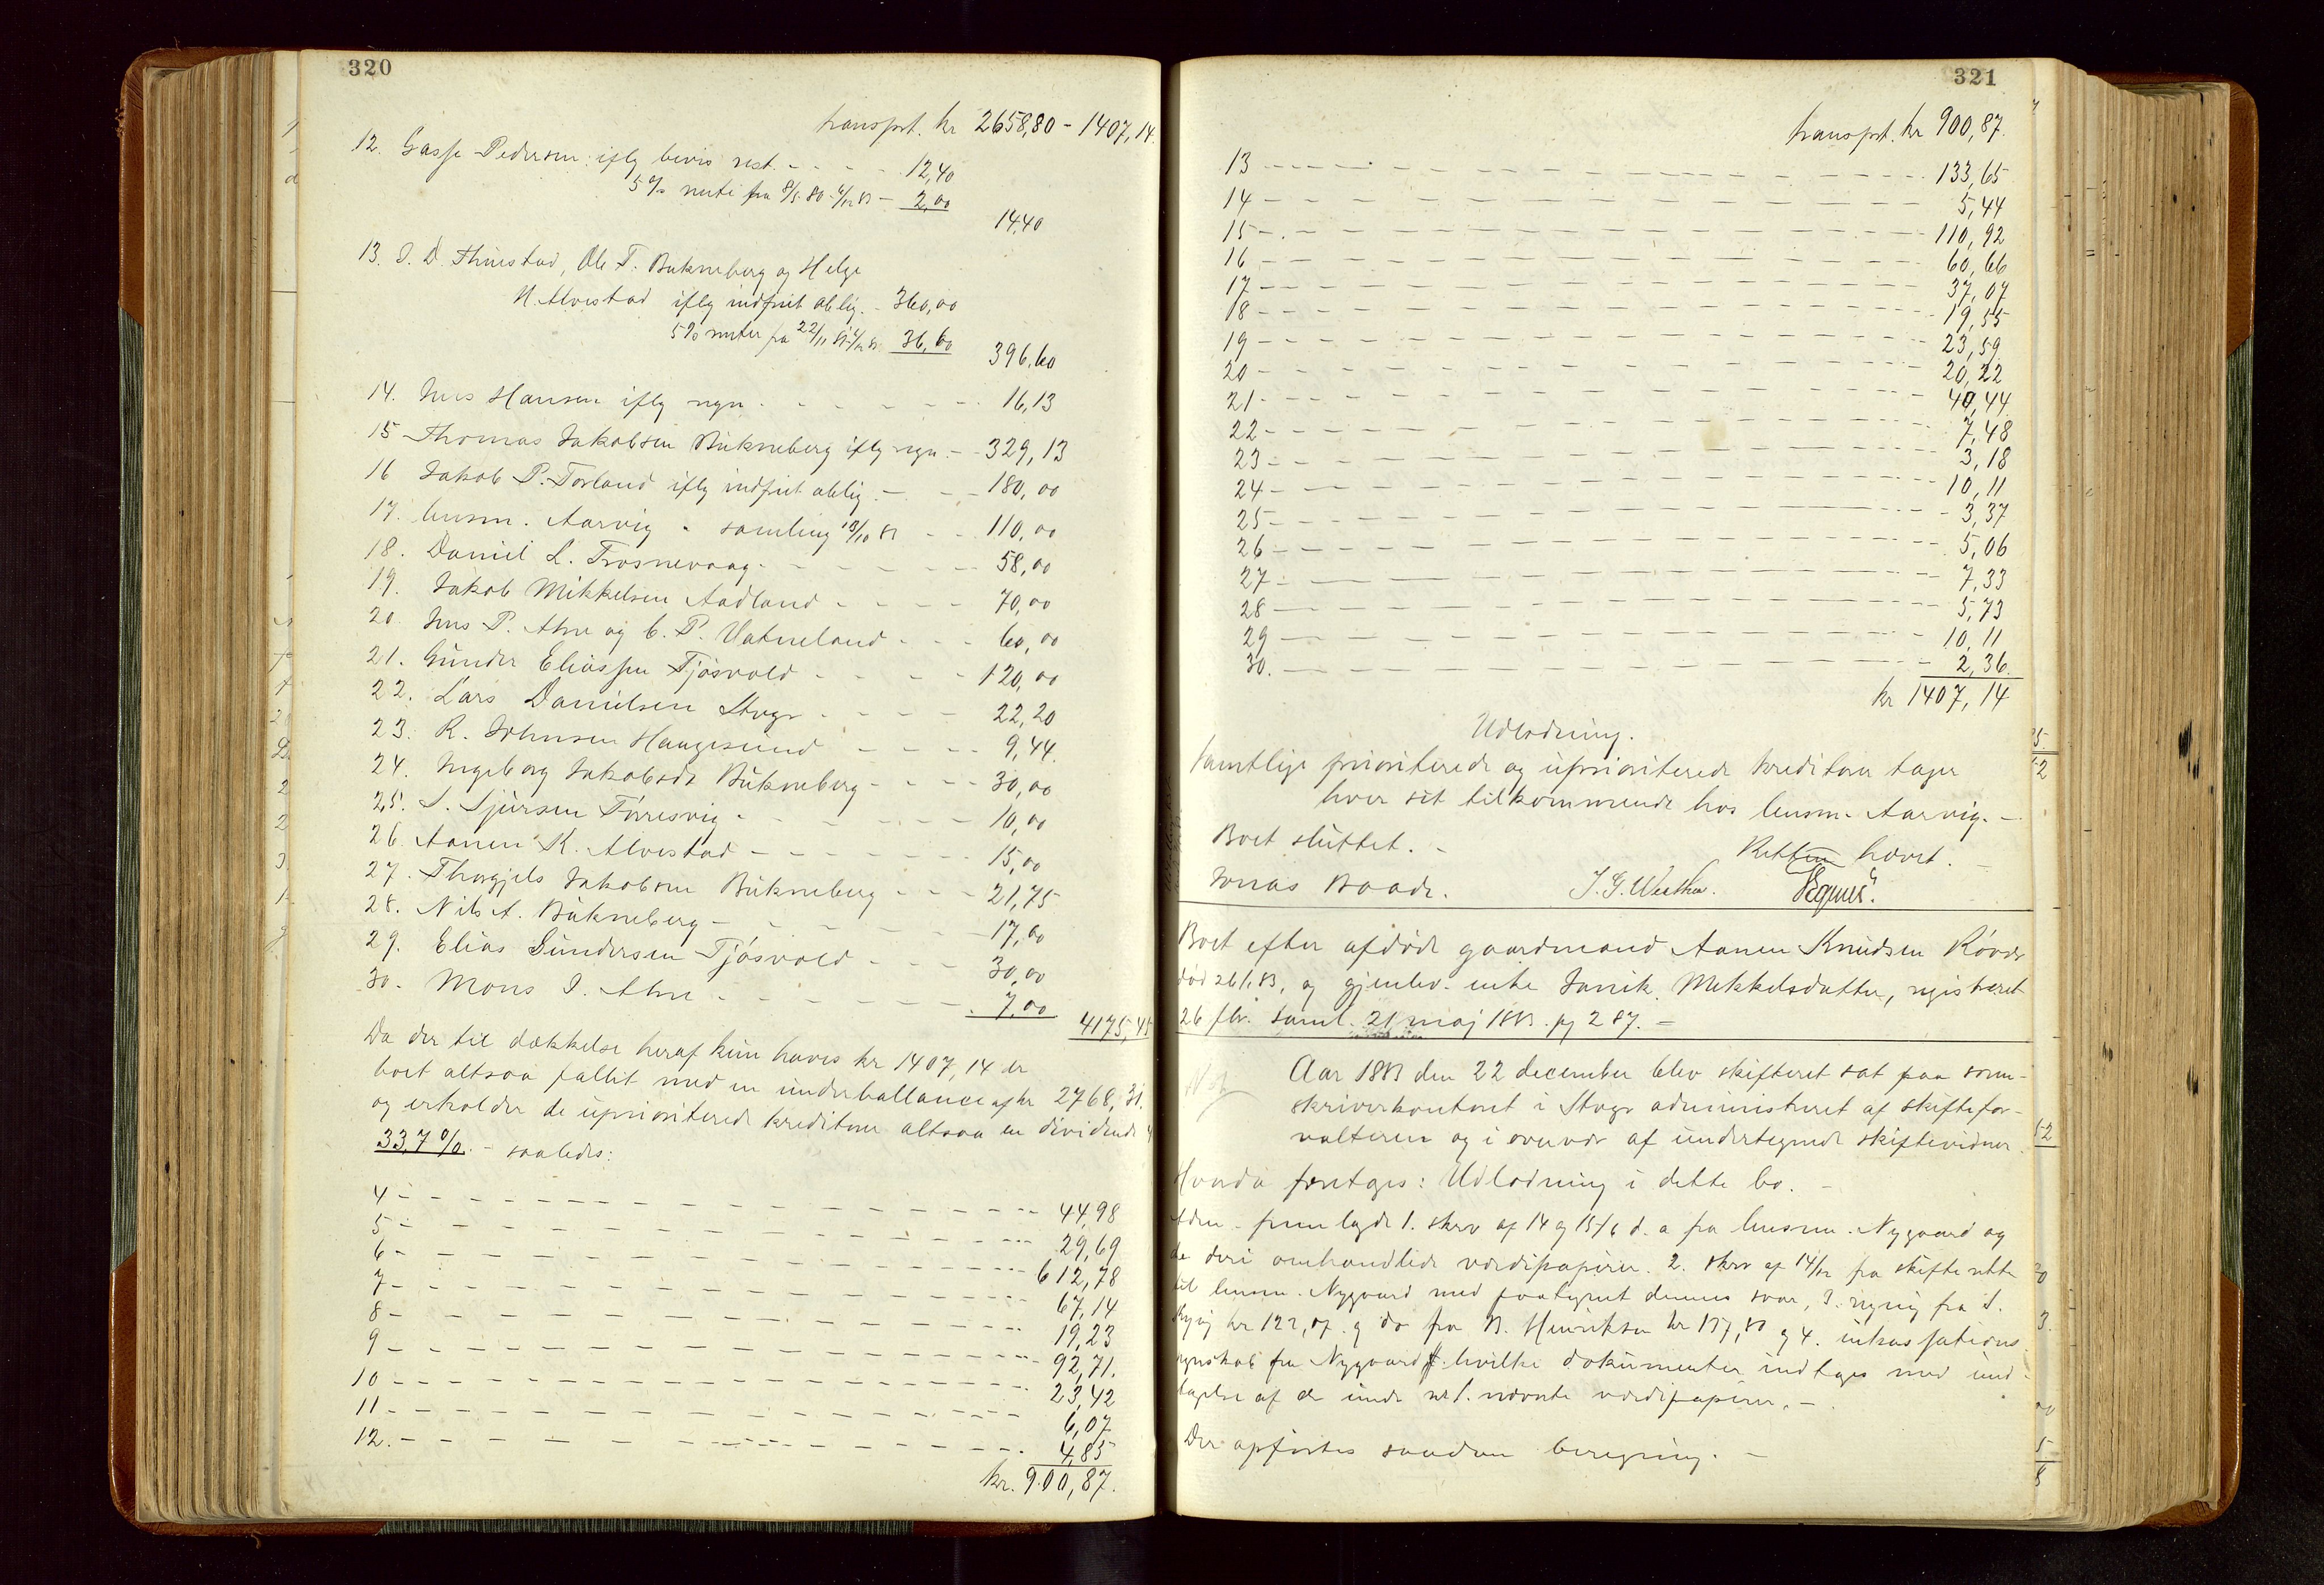 320
transprt. kr 2658,80 - 1407,14.
12. Gasse Pedersen: iflg bevis rest. - - - 12,40
5 % rente fra 8/5 80 - 4/12 83 - 2,00
14,40
13. O. D. Thuestad, Ole T. Bukneberg og Helge
N. Alvestad iflg indfriet oblig. - 360,00
5 % renter fra 22/11 81 - 4/12 83 36,60
396,60
14. Jens Hansen iflg regn. - - - - - - 16,13
15 Thomas Jakobsen Bukneberg iflg regn. - - 329,13
16 Jakob P. Torland iflg indfriet oblig. - - - 180,00
17. lensm. Aarvig " samling 19/10 83 - - 110,00
18. Daniel L. Trosnevaag. - - - - - - 58,00
19. Jakob Mikkelsen Aadland - - - - 70,00
20. Jens P. Ahre og C. P. Vatneland - - - 60,00
21. Gunder Eliassen Tjøsvold - - - - 120,00
22. Lars Danielsen Stvgr - - - - 22,20
23. R. Johnsen Haugesund - - - - 9,44.
24. Ingeborg Jakobsdr Bukneberg - - - - 30,00
25. S. Sjursen Førresvig - - - - - - 10,00
26. Aanen K. Alvestad - - - - - - 15,00
27. Thorgjels Jakobsen Bukneberg - - - 21,75
28. Nils A. Bukneberg - - - - - - 17,00
29. Elias Gundersen Tjøsvold - - - 30,00
30. Mons I. Ahre - - - - - - - 7,00
4175,45
Da der til dækkelse heraf kun haves kr 1407,14 er
boet altsaa fallit med en underballance af kr 2768,31.
og erholder de uprioriterede kreditorer altsaa en dividende af
33,7 %. - saaledes:
4 - - - - - - - - - - - - 44,98
5 - - - - - - - - - - - - 29,69
6 - - - - - - - - - - - - 612,78
7 - - - - - - - - - - - - 67,14
8 - - - - - - - - - - - - 19,23
9 - - - - - - - - - - - - 92,71.
10 - - - - - - - - - - - - 23,42
11 - - - - - - - - - - - - 6,07
12. - - - - - - - - - - - - 4,85
kr. 900,87.
321
transprt. kr 900,87.
13 - - - - - - - - - - - - 133,65
14 - - - - - - - - - - - - 5,44
15 - - - - - - - - - - - - 110,92
16 - - - - - - - - - - - - 60,66
17 - - - - - - - - - - - - 37,07
18 - - - - - - - - - - - - 19,55
19 - - - - - - - - - - - - 23,59
20 - - - - - - - - - - - - 20,22
21 - - - - - - - - - - - - 40,44
22 - - - - - - - - - - - - 7,48
23 - - - - - - - - - - - - 3,18
24 - - - - - - - - - - - - 10,11
25 - - - - - - - - - - - - 3,37
26 - - - - - - - - - - - - 5,06
27 - - - - - - - - - - - - 7,33
28 - - - - - - - - - - - - 5,73
29 - - - - - - - - - - - - 10,11
30. - - - - - - - - - - - - 2,36.
kr 1407,14
Udlodning.
Samtlige prioriterede og uprioriterede kreditorer tager
hver sit tilkommende hos lensm. Aarvig. -
Boet sluttet. - Retten hævet. -
Jonas Baade.
Boet efter afdøde gaardmand Aanen Knudsen
død 26/1 83, og gjenlev. enke Jannik. Mekkelsdatter, registreret
26 febr. saml. 21 maj 1883. pg 287. -
Aar 1883 den 22 december blev skifteret sat paa soren-
skriverkontoret i Stvgr administreret af skiftefor-
valteren og i overvær af undertegnede skiftevidner.
Hvorda foretoges: Udlodning i dette bo. -
Adm. fremlagde 1. skrv af 14 og 15/6 d. a fra lensm. Nygaard og
de deri omhandlede værdipapirer. 2. skrv af 14/12 fra skifteretten
til lensm. Nygaard med paategnet dennes svar, 3. regning fra
kr 122,07. og do fra B. Henriksen kr 137,80 og 4. inkassations
regnskab fra Nygaard hvilke dokumenter indtages med und-
tagelse af de under no 1. nævnte værdipapirer. -
Der opførtes saadan beregning. -